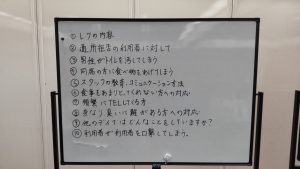 ①レクの内容
②通所拒否の利用者に対して
③男性がトイレを汚してしまう
④同席の方に食べ物をあげてしまう
⑤スタッフの教育、コミュニケーション方法
⑥食事もあまりとってくれない方への対応
⑦頻繁にTELしてくる方
⑧身なり臭いに難がある方への対応
⑨他のデイではどんなことをしていますか?
⑩利用者が利用者を口撃してしまう。